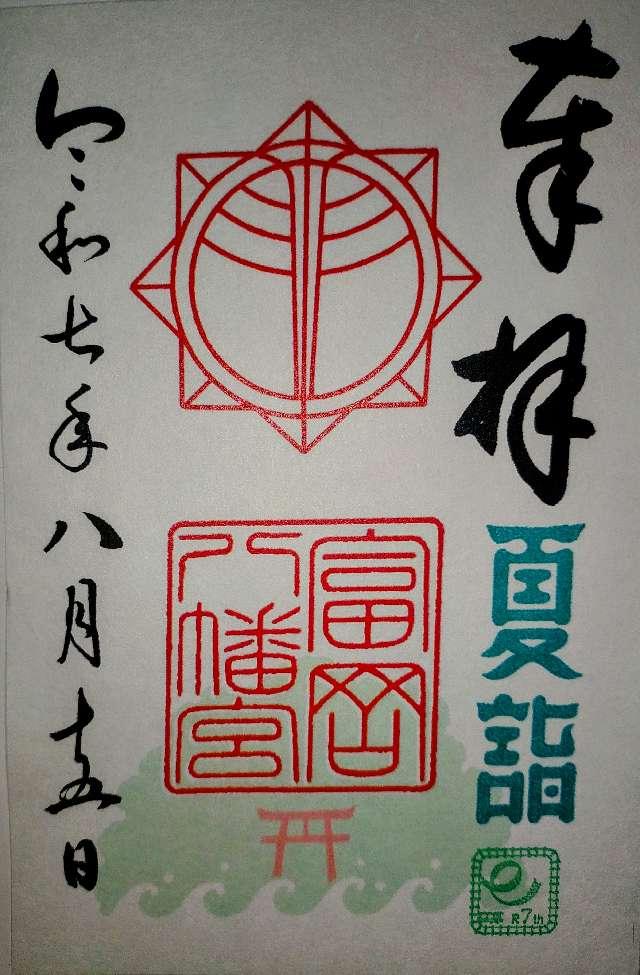 奉拝
夏詣
R7th
富岡
八幡宮
令和七年八月十五日